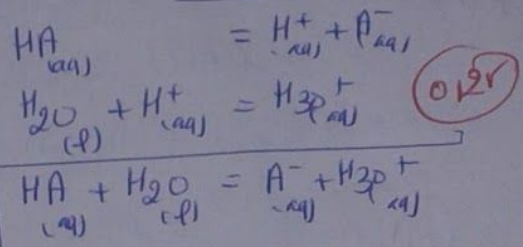 HA(aq) = H⁺(aq) + A⁻(aq)
H₂O(l) + H⁺(aq) = H₃O⁺(aq)
0,25
HA(aq) + H₂O(l) = A⁻(aq) + H₃O⁺(aq)